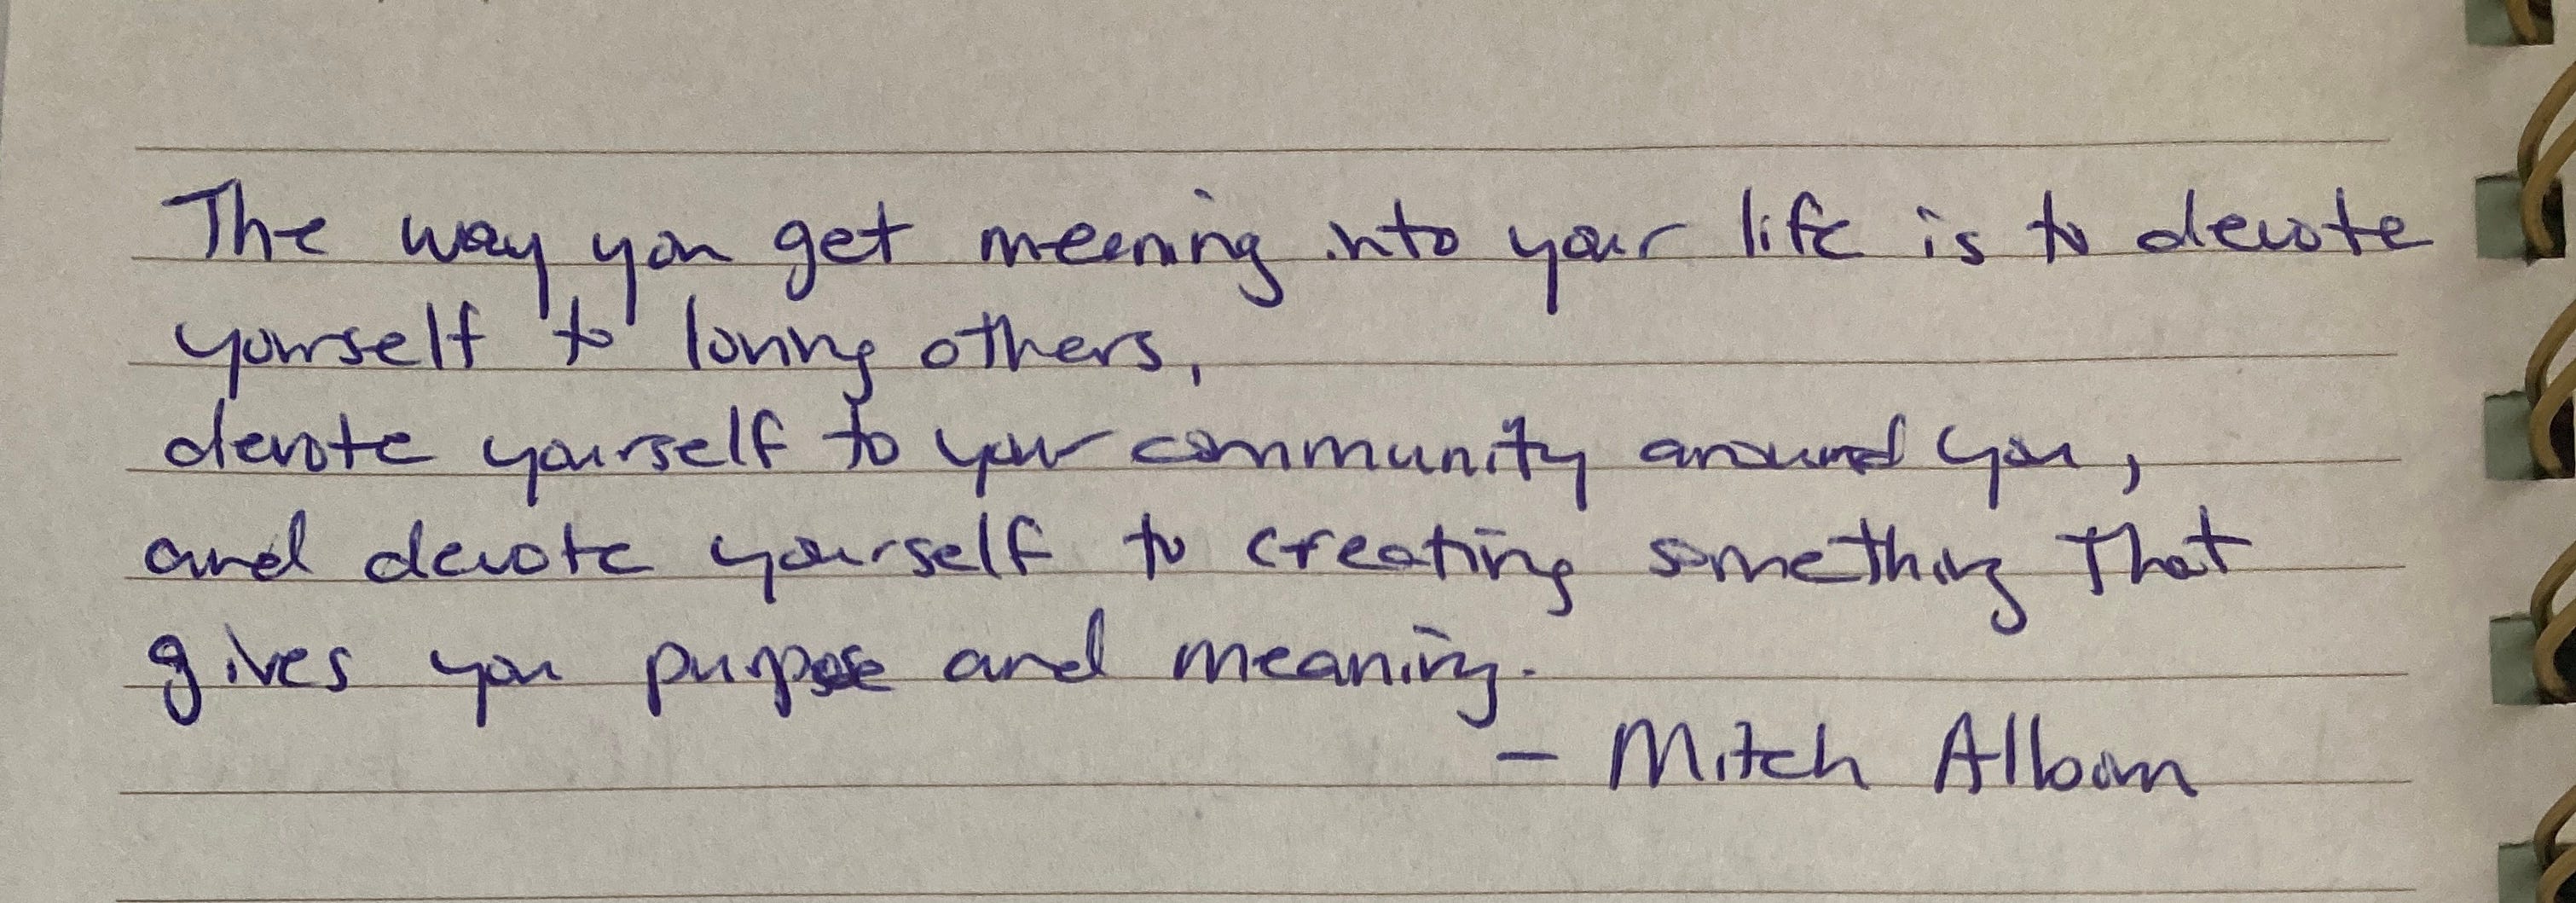 The way you get meaning into your life is to devote
yourself to loving others,
devote yourself to your community around you,
and devote yourself to creating something that
gives you purpose and meaning.
- Mitch Albom